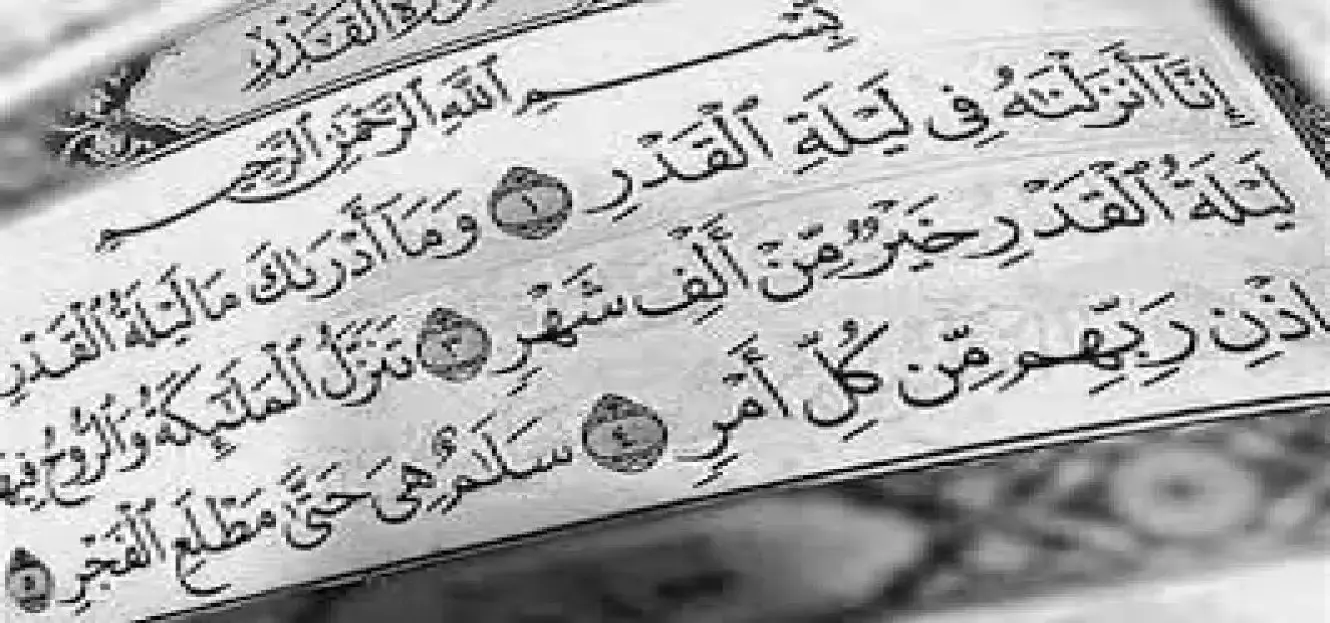 سُورَةُ ٱلْقَدْرِ
بِسْمِ ٱللَّهِ ٱلرَّحْمَٰنِ ٱلرَّحِيمِ
إِنَّآ أَنزَلْنَٰهُ فِى لَيْلَةِ ٱلْقَدْرِ ١ وَمَآ أَدْرَىٰكَ مَا لَيْلَةُ ٱلْقَدْرِ
لَيْلَةُ ٱلْقَدْرِ خَيْرٌ مِّنْ أَلْفِ شَهْرٍ ٣ تَنَزَّلُ ٱلْمَلَٰٓئِكَةُ وَٱلرُّوحُ فِيهَا
إِذْنِ رَبِّهِم مِّن كُلِّ أَمْرٍ ٤ سَلَٰمٌ هِىَ حَتَّىٰ مَطْلَعِ ٱلْفَجْرِ ٥